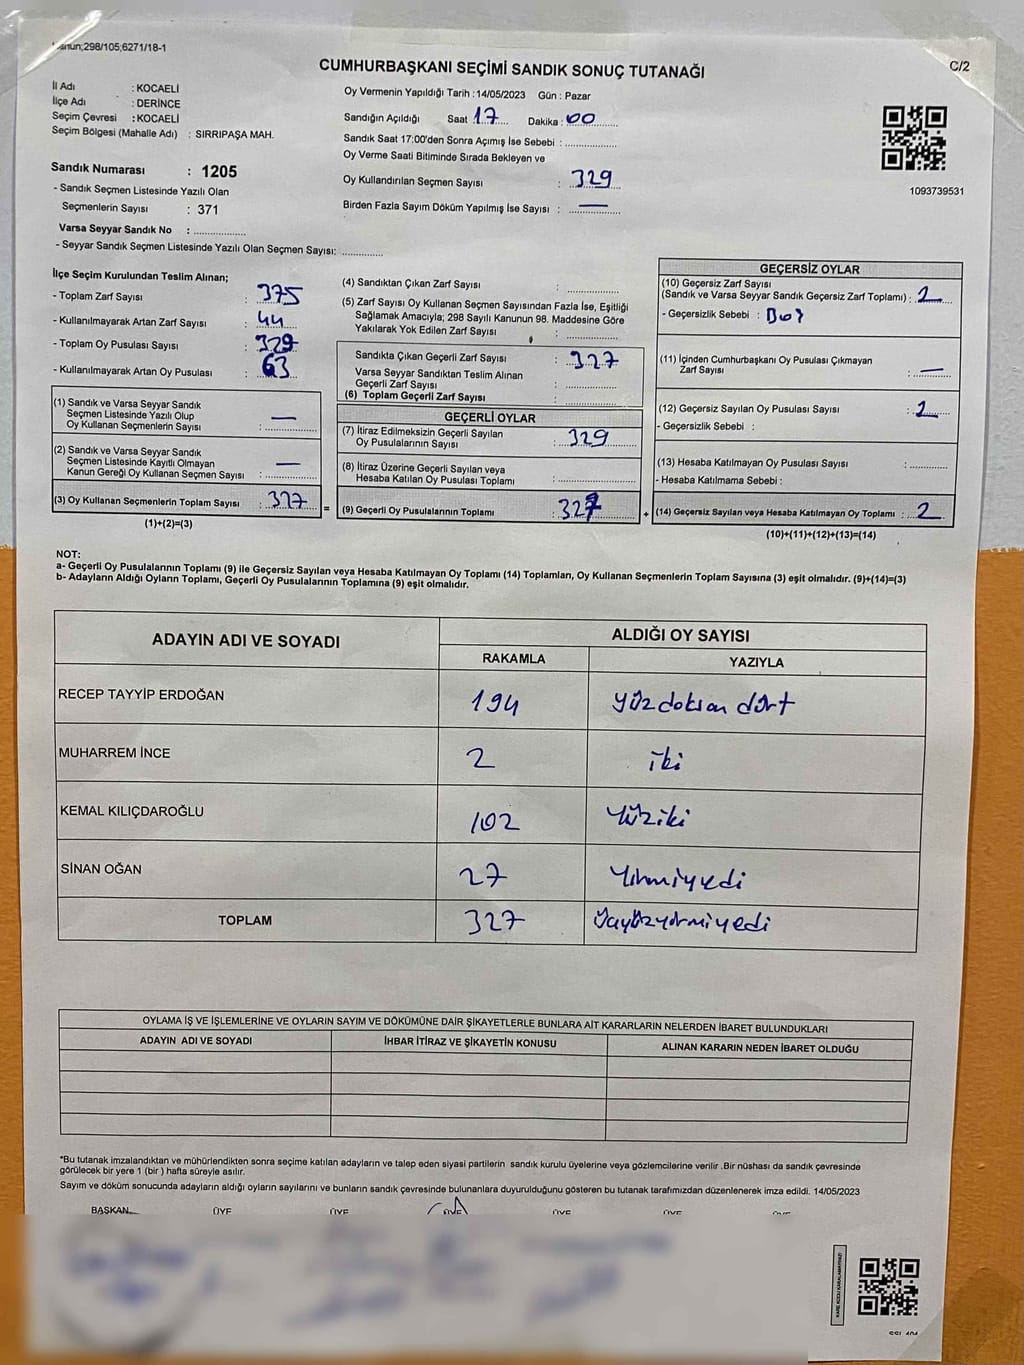 Kanun;298/105;6271/18-1
C/2
CUMHURBAŞKANI SEÇİMİ SANDIK SONUÇ TUTANAĞI
İl Adı : KOCAELİ
İlçe Adı : DERİNCE
Seçim Çevresi : KOCAELİ
Seçim Bölgesi (Mahalle Adı) : SIRRIPAŞA MAH.
Sandık Numarası : 1205
- Sandık Seçmen Listesinde Yazılı Olan
Seçmenlerin Sayısı : 371
Varsa Seyyar Sandık No : ...............
- Seyyar Sandık Seçmen Listesinde Yazılı Olan Seçmen Sayısı: ............
Oy Vermenin Yapıldığı Tarih : 14/05/2023 Gün : Pazar
Sandığın Açıldığı Saat 17 Dakika : 00
Sandık Saat 17:00'den Sonra Açımış İse Sebebi : ...............
Oy Verme Saati Bitiminde Sırada Bekleyen ve
Oy Kullandırılan Seçmen Sayısı : 329
Birden Fazla Sayım Döküm Yapılmış İse Sayısı : —
1093739531
İlçe Seçim Kurulundan Teslim Alınan;
- Toplam Zarf Sayısı : 375
- Kullanılmayarak Artan Zarf Sayısı : 44
- Toplam Oy Pusulası Sayısı :
- Kullanılmayarak Artan Oy Pusulası : 63
(1) Sandık ve Varsa Seyyar Sandık
Seçmen Listesinde Yazılı Olup
Oy Kullanan Seçmenlerin Sayısı : —
(2) Sandık ve Varsa Seyyar Sandık
Seçmen Listesinde Kayıtlı Olmayan
Kanun Gereği Oy Kullanan Seçmen Sayısı : —
(3) Oy Kullanan Seçmenlerin Toplam Sayısı : 327 =
(1)+(2)=(3)
(4) Sandıktan Çıkan Zarf Sayısı : ...............
(5) Zarf Sayısı Oy Kullanan Seçmen Sayısından Fazla İse, Eşitliği
Sağlamak Amacıyla; 298 Sayılı Kanunun 98. Maddesine Göre
Yakılarak Yok Edilen Zarf Sayısı : ...............
Sandıkta Çıkan Geçerli Zarf Sayısı : 327
Varsa Seyyar Sandıktan Teslim Alınan
Geçerli Zarf Sayısı : ...............
(6) Toplam Geçerli Zarf Sayısı : ...............
GEÇERLİ OYLAR
(7) İtiraz Edilmeksizin Geçerli Sayılan
Oy Pusulalarının Sayısı : 329
(8) İtiraz Üzerine Geçerli Sayılan veya
Hesaba Katılan Oy Pusulası Toplamı : ...............
(9) Geçerli Oy Pusulalarının Toplamı : +
GEÇERSİZ OYLAR
(10) Geçersiz Zarf Sayısı
(Sandık ve Varsa Seyyar Sandık Geçersiz Zarf Toplamı) : 2
- Geçersizlik Sebebi : Boş
(11) İçinden Cumhurbaşkanı Oy Pusulası Çıkmayan
Zarf Sayısı : —
(12) Geçersiz Sayılan Oy Pusulası Sayısı : 2
- Geçersizlik Sebebi :
(13) Hesaba Katılmayan Oy Pusulası Sayısı : ............
- Hesaba Katılmama Sebebi :
(14) Geçersiz Sayılan veya Hesaba Katılmayan Oy Toplamı : 2
(10)+(11)+(12)+(13)=(14)
NOT:
a- Geçerli Oy Pusulalarının Toplamı (9) ile Geçersiz Sayılan veya Hesaba Katılmayan Oy Toplamı (14) Toplamları, Oy Kullanan Seçmenlerin Toplam Sayısına (3) eşit olmalıdır. (9)+(14)=(3)
b- Adayların Aldığı Oyların Toplamı, Geçerli Oy Pusulalarının Toplamına (9) eşit olmalıdır.
ADAYIN ADI VE SOYADI ALDIĞI OY SAYISI
RAKAMLA YAZIYLA
RECEP TAYYİP ERDOĞAN 194 yüzdoksan dört
MUHARREM İNCE 2 iki
KEMAL KILIÇDAROĞLU 102 Yüziki
SİNAN OĞAN 27 Yirmiyedi
TOPLAM 327 Üçyüzyirmiyedi
OYLAMA İŞ VE İŞLEMLERİNE VE OYLARIN SAYIM VE DÖKÜMÜNE DAİR ŞİKAYETLERLE BUNLARA AİT KARARLARIN NELERDEN İBARET BULUNDUKLARI
ADAYIN ADI VE SOYADI İHBAR İTİRAZ VE ŞİKAYETİN KONUSU ALINAN KARARIN NEDEN İBARET OLDUĞU
*Bu tutanak imzalandıktan ve mühürlendikten sonra seçime katılan adayların ve talep eden siyasi partilerin sandık kurulu üyelerine veya gözlemcilerine verilir .Bir nüshası da sandık çevresinde
görülecek bir yere 1 (bir ) hafta süreyle asılır.
Sayım ve döküm sonucunda adayların aldığı oyların sayılarını ve bunların sandık çevresinde bulunanlara duyurulduğunu gösteren bu tutanak tarafımızdan düzenlenerek imza edildi. 14/05/2023
BAŞKAN ÜYE ÜYE ÜYE ÜYE ÜYE ÜYE